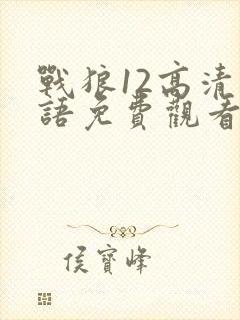 戰狼12高清
語免費觀看
侯寶峰